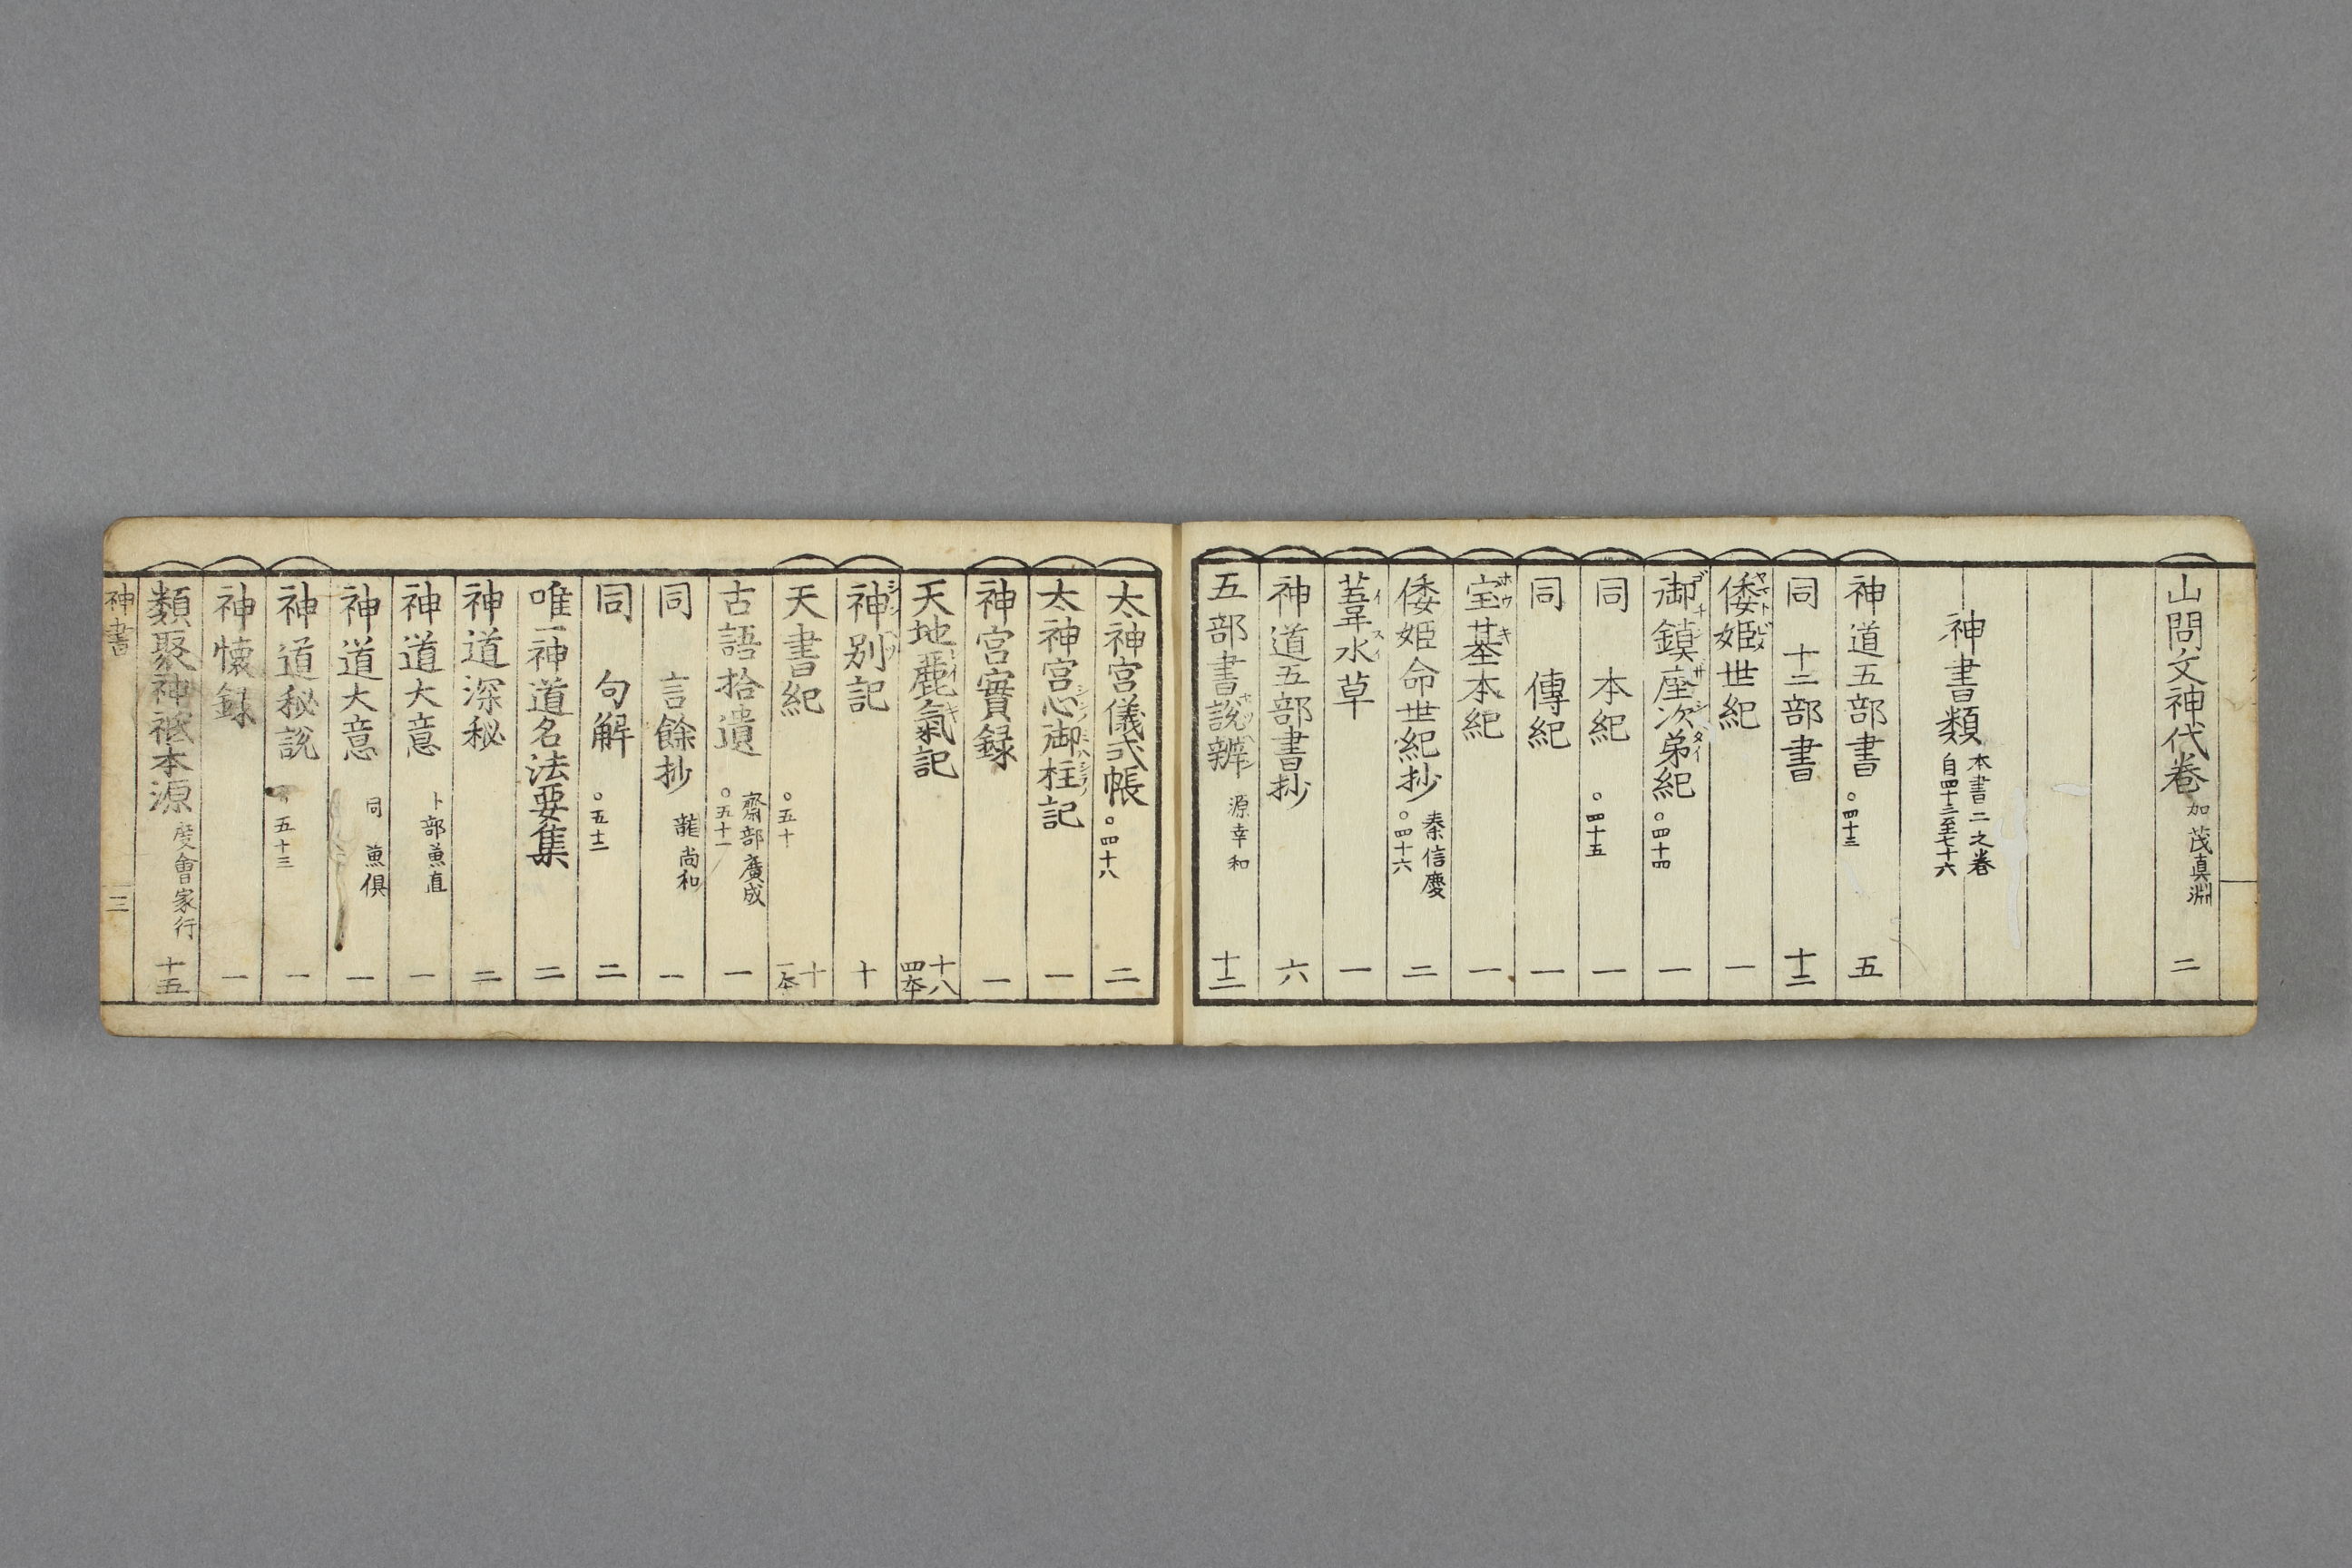 山問文神代巻 加茂真淵 二
神書類 本書二之巻 自四十三至七十六
神道五部書 。四十三 五
同 十二部書 十二
倭姫世紀 一
御鎮座次第紀 。四十四 一
同 本紀 。四十五 一
同 傳紀 一
宝基本紀 一
倭姫命世紀抄 秦信慶 。四十六 二
葦水草 一
神道五部書抄 六
五部書説辨 源幸和 十二
太神宮儀式帳 。四十八 二
太神宮心御柱記 一
神宮實録 一
天地麗氣記 十八 四本
神別記 十
天書紀 。五十 十 一本
古語拾遺 齋部廣成 。五十一 一
同 言餘抄 龍尚和 一
同 句解 。五十二 二
唯一神道名法要集 二
神道深秘 二
神道大意 卜部兼直 一
神道大意 同 兼倶 一
神道秘説 五十三 一
神懐録 一
類聚神祇本源 度會家行 十五
神書 三